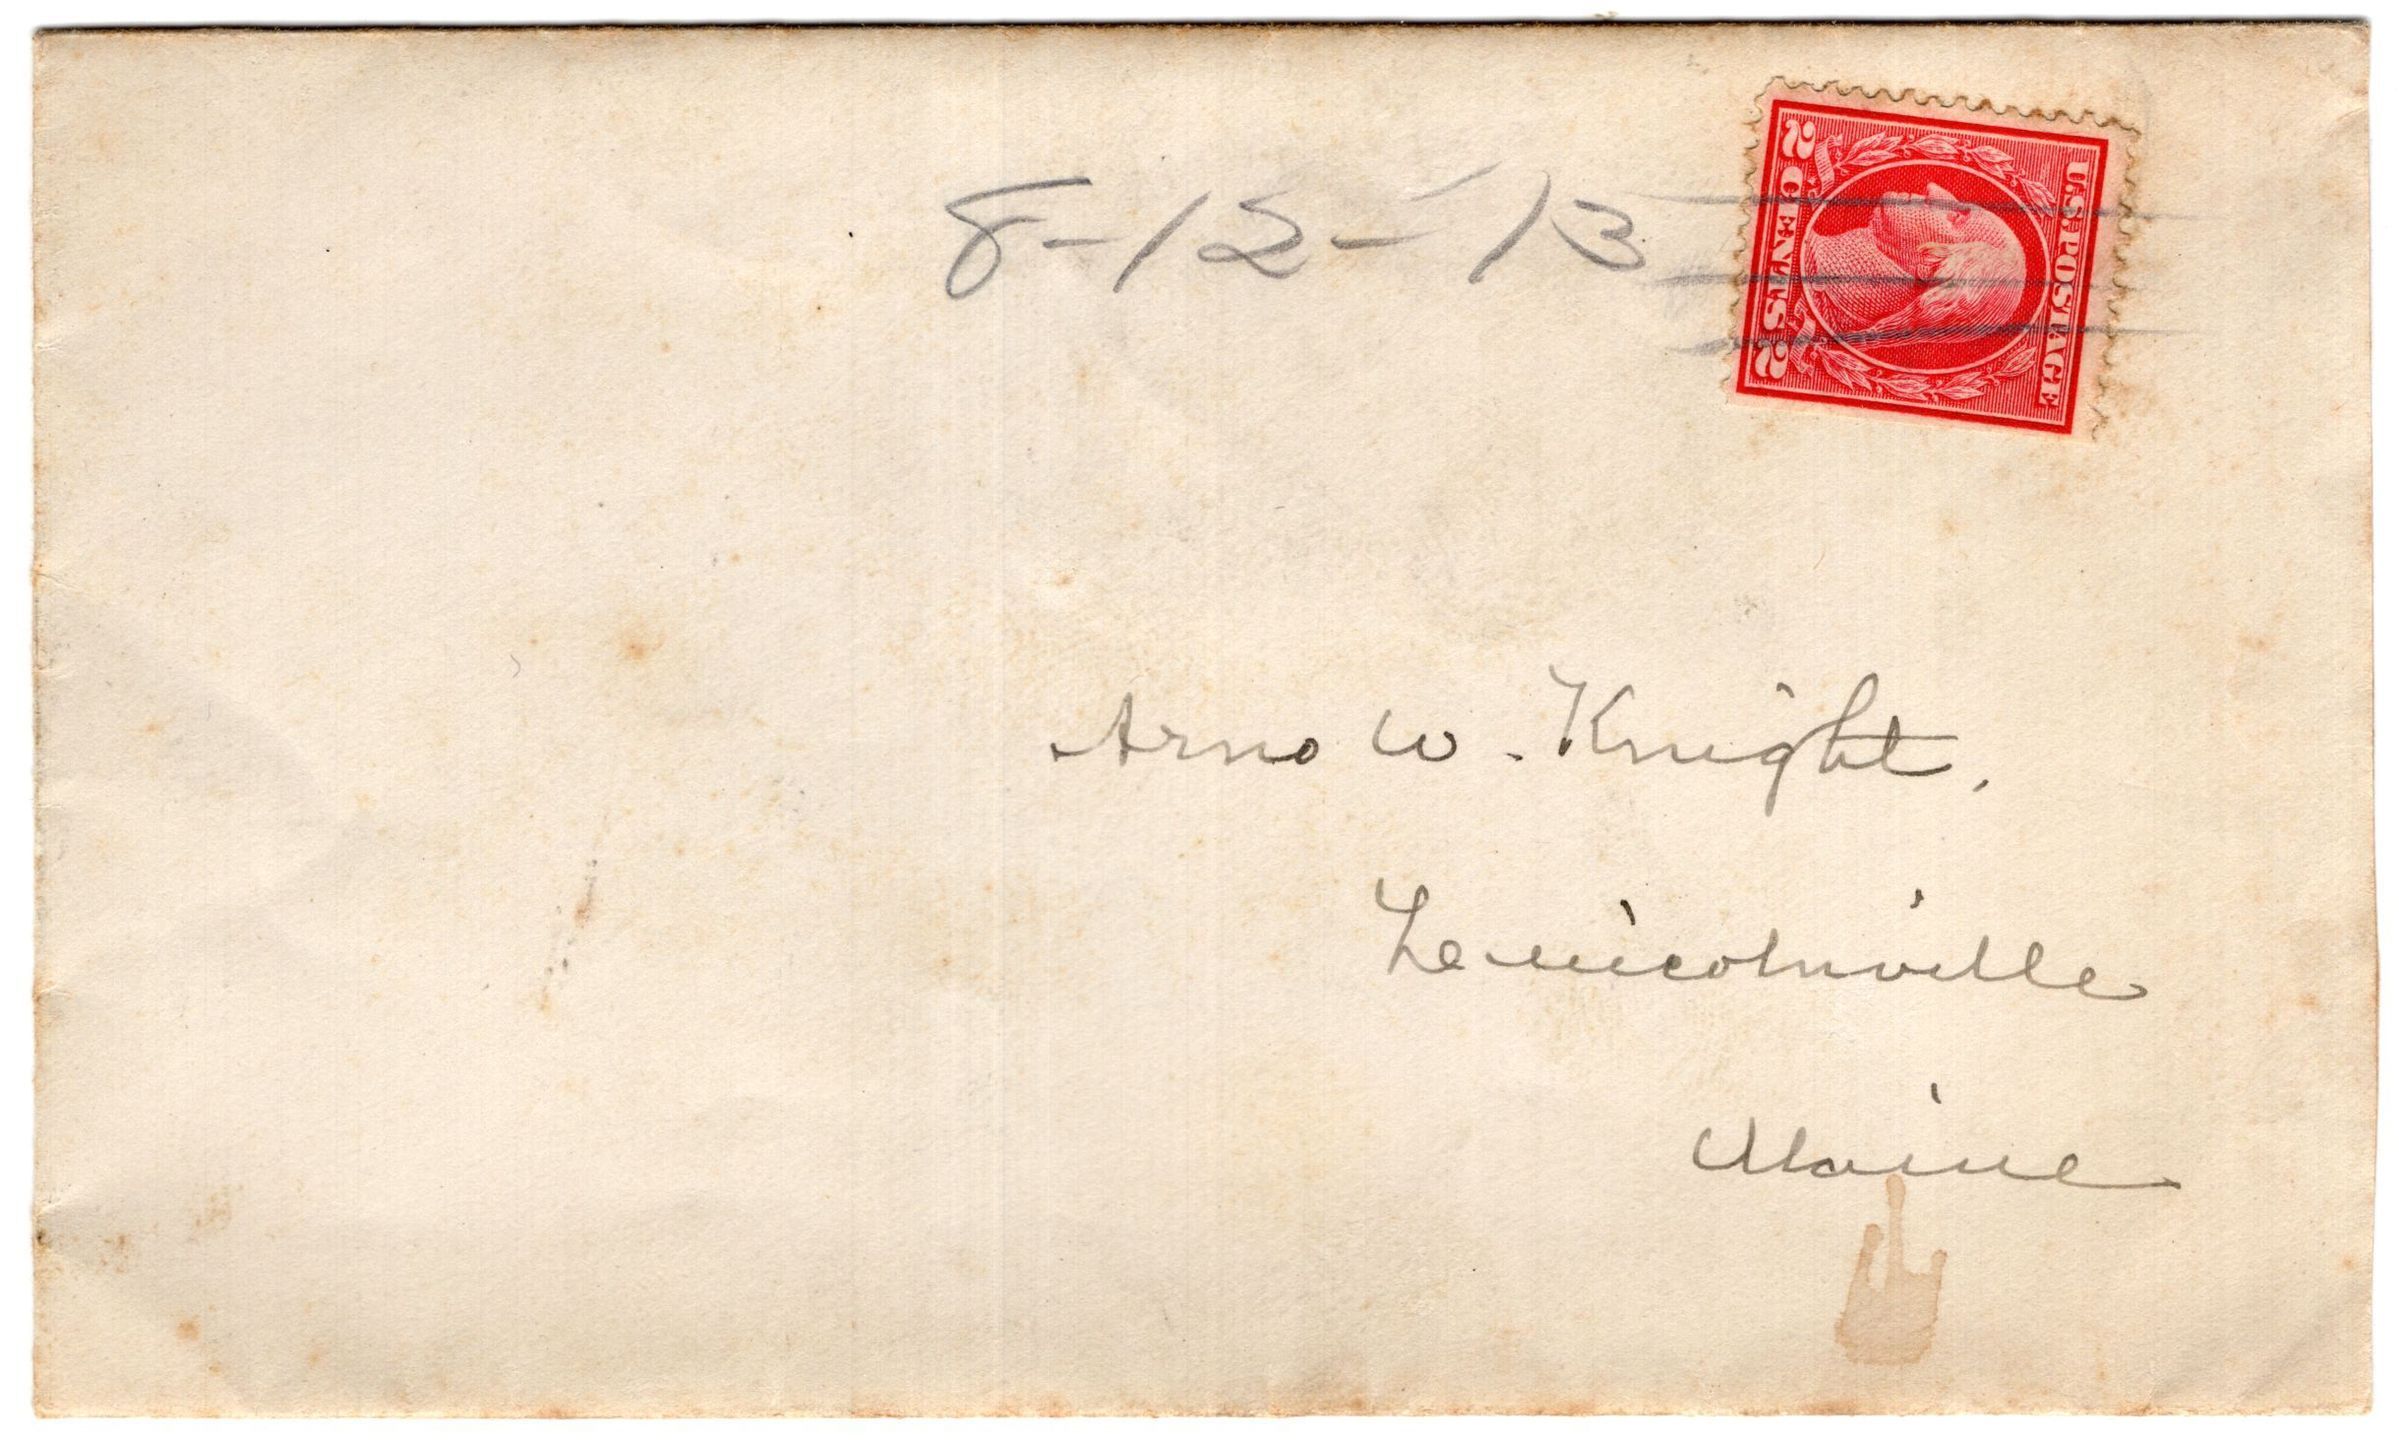 8-12-'13
U.S. POSTAGE
2 CENTS 2
Arno W. Knight.
Lincolnville
Maine